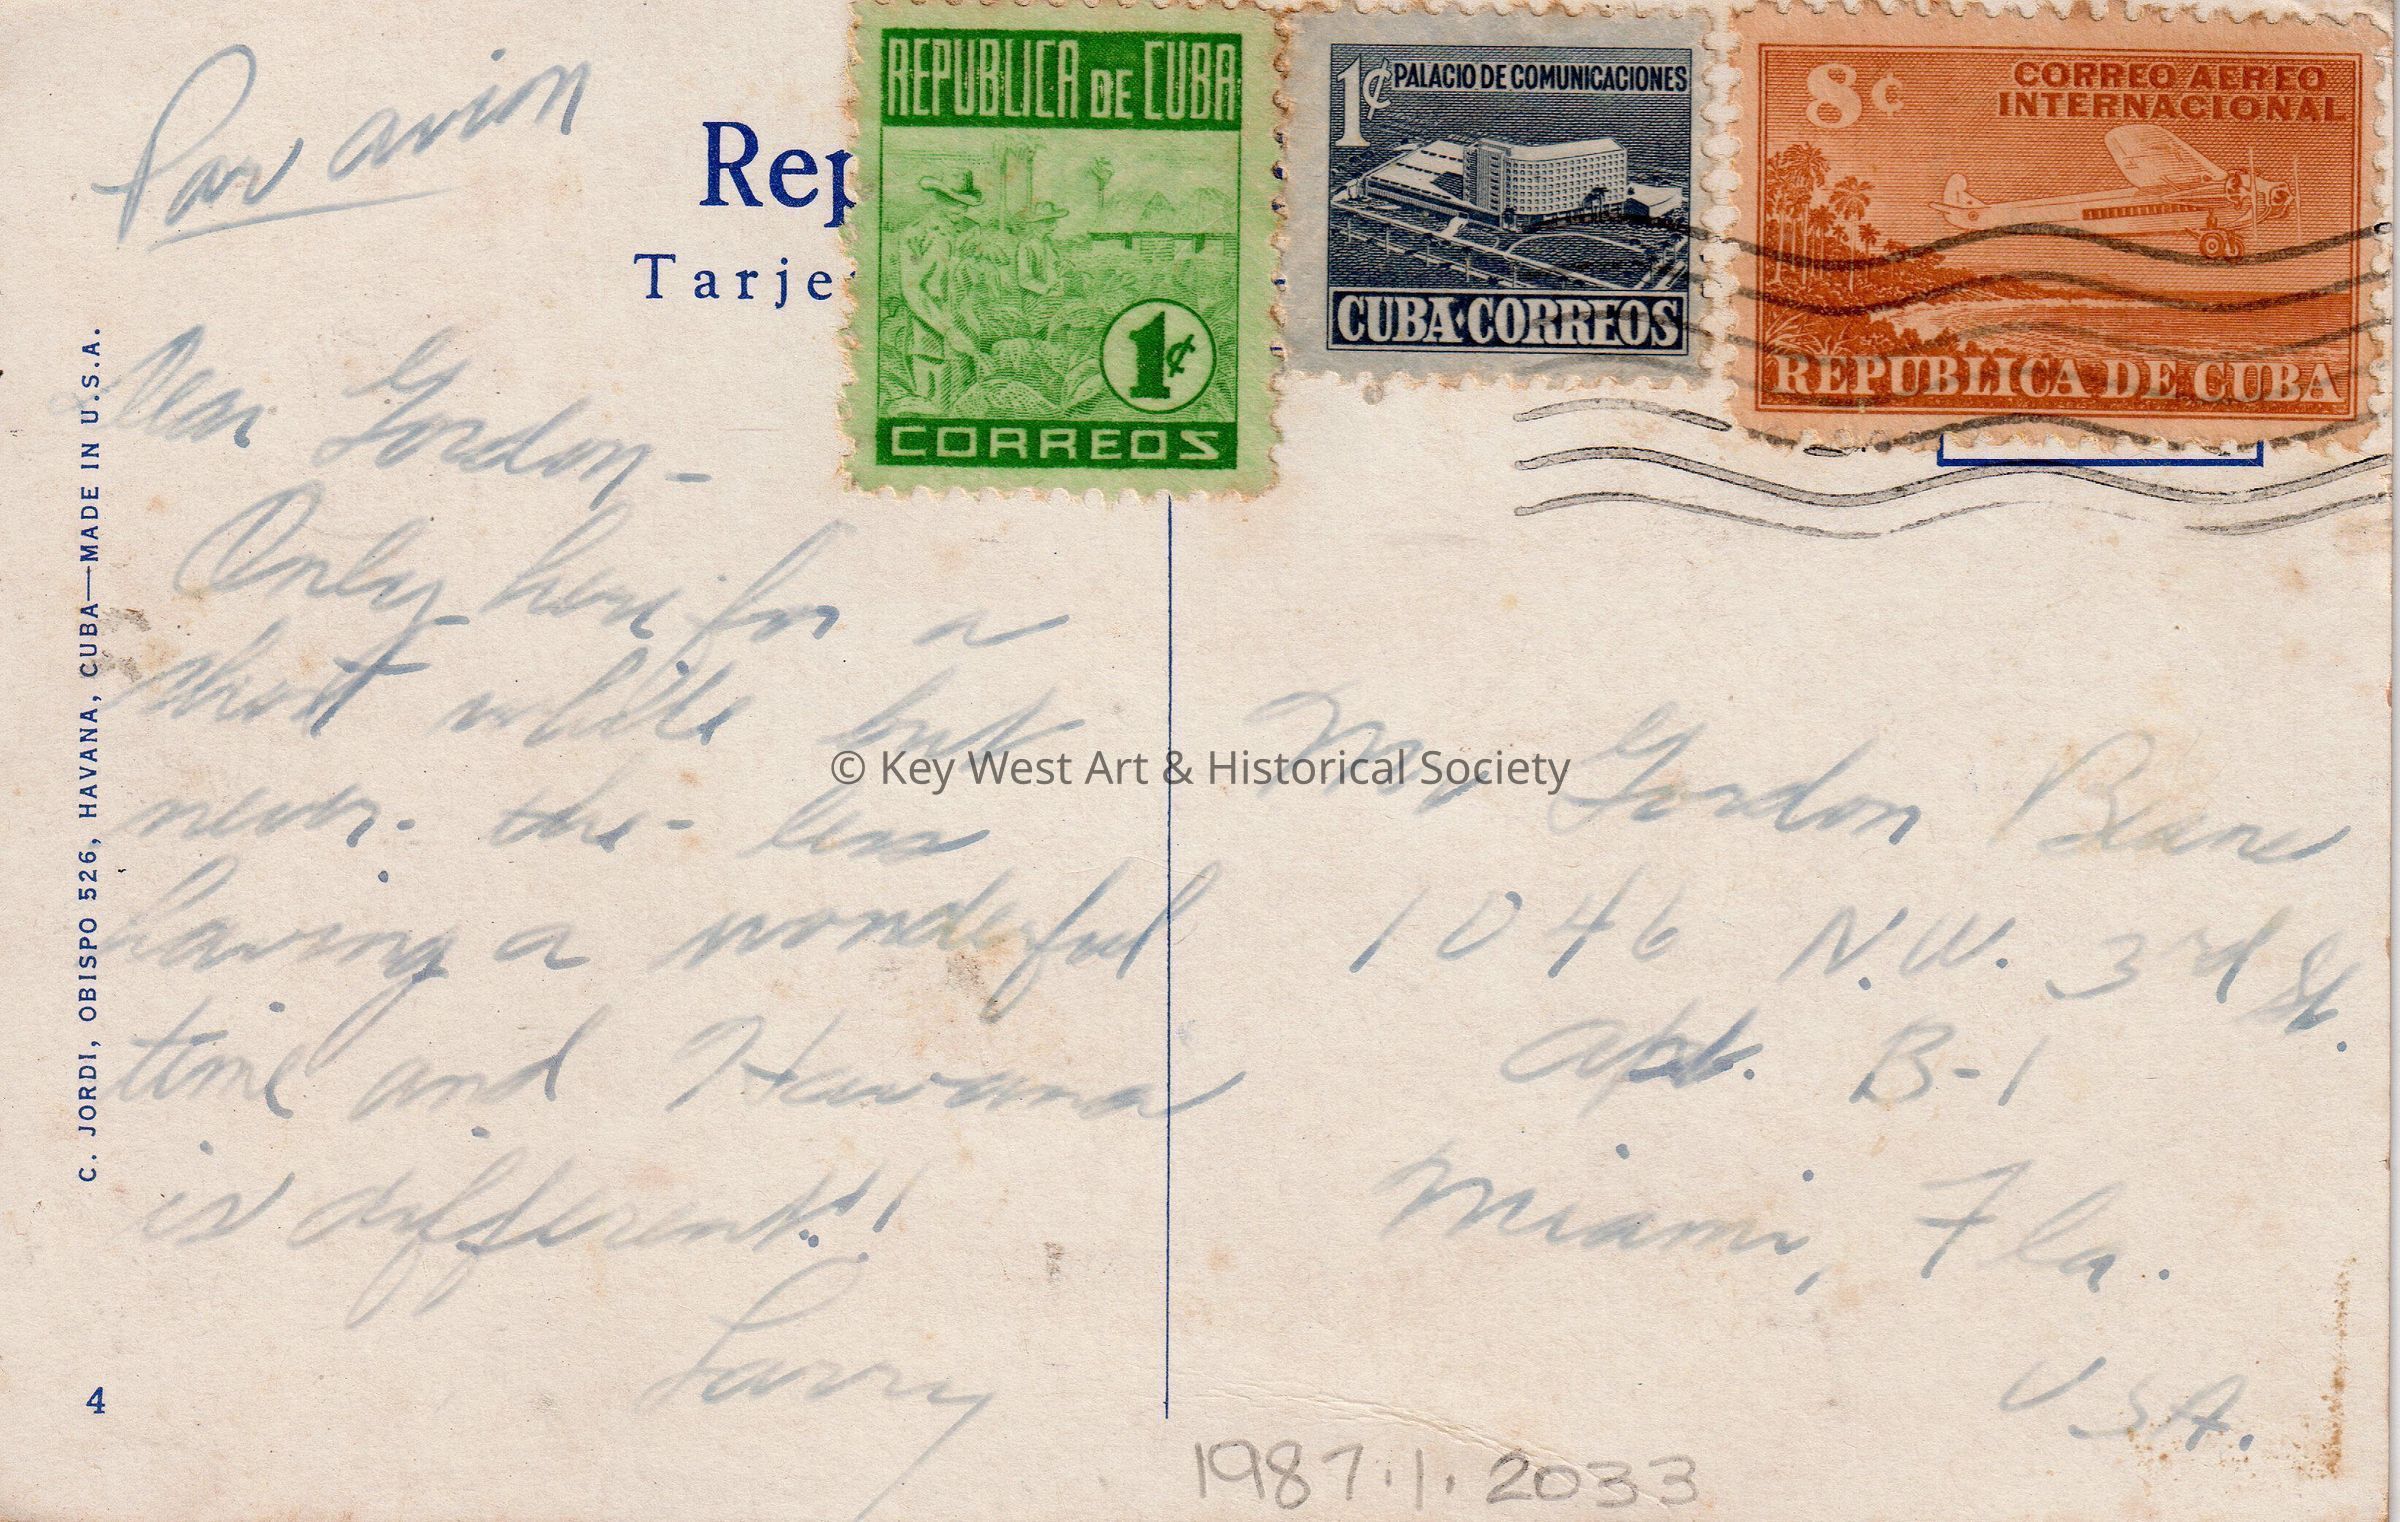 Par avion
Rep
Tarje
REPUBLICA DE CUBA
1¢
CORREOS
1¢ PALACIO DE COMUNICACIONES
CUBA·CORREOS
8¢ CORREO AEREO
INTERNACIONAL
REPUBLICA DE CUBA
C. JORDI, OBISPO 526, HAVANA, CUBA—MADE IN U.S.A.
Dear Gordon -
Only here for a
short while but
never - the - less
having a wonderful
time and Havana
is different!!!
Larry
4
© Key West Art & Historical Society
Mr Gordon Beane
1046 N.W. 3rd St.
apt. B-1
Miami, Fla.
USA.
1987.1.2033